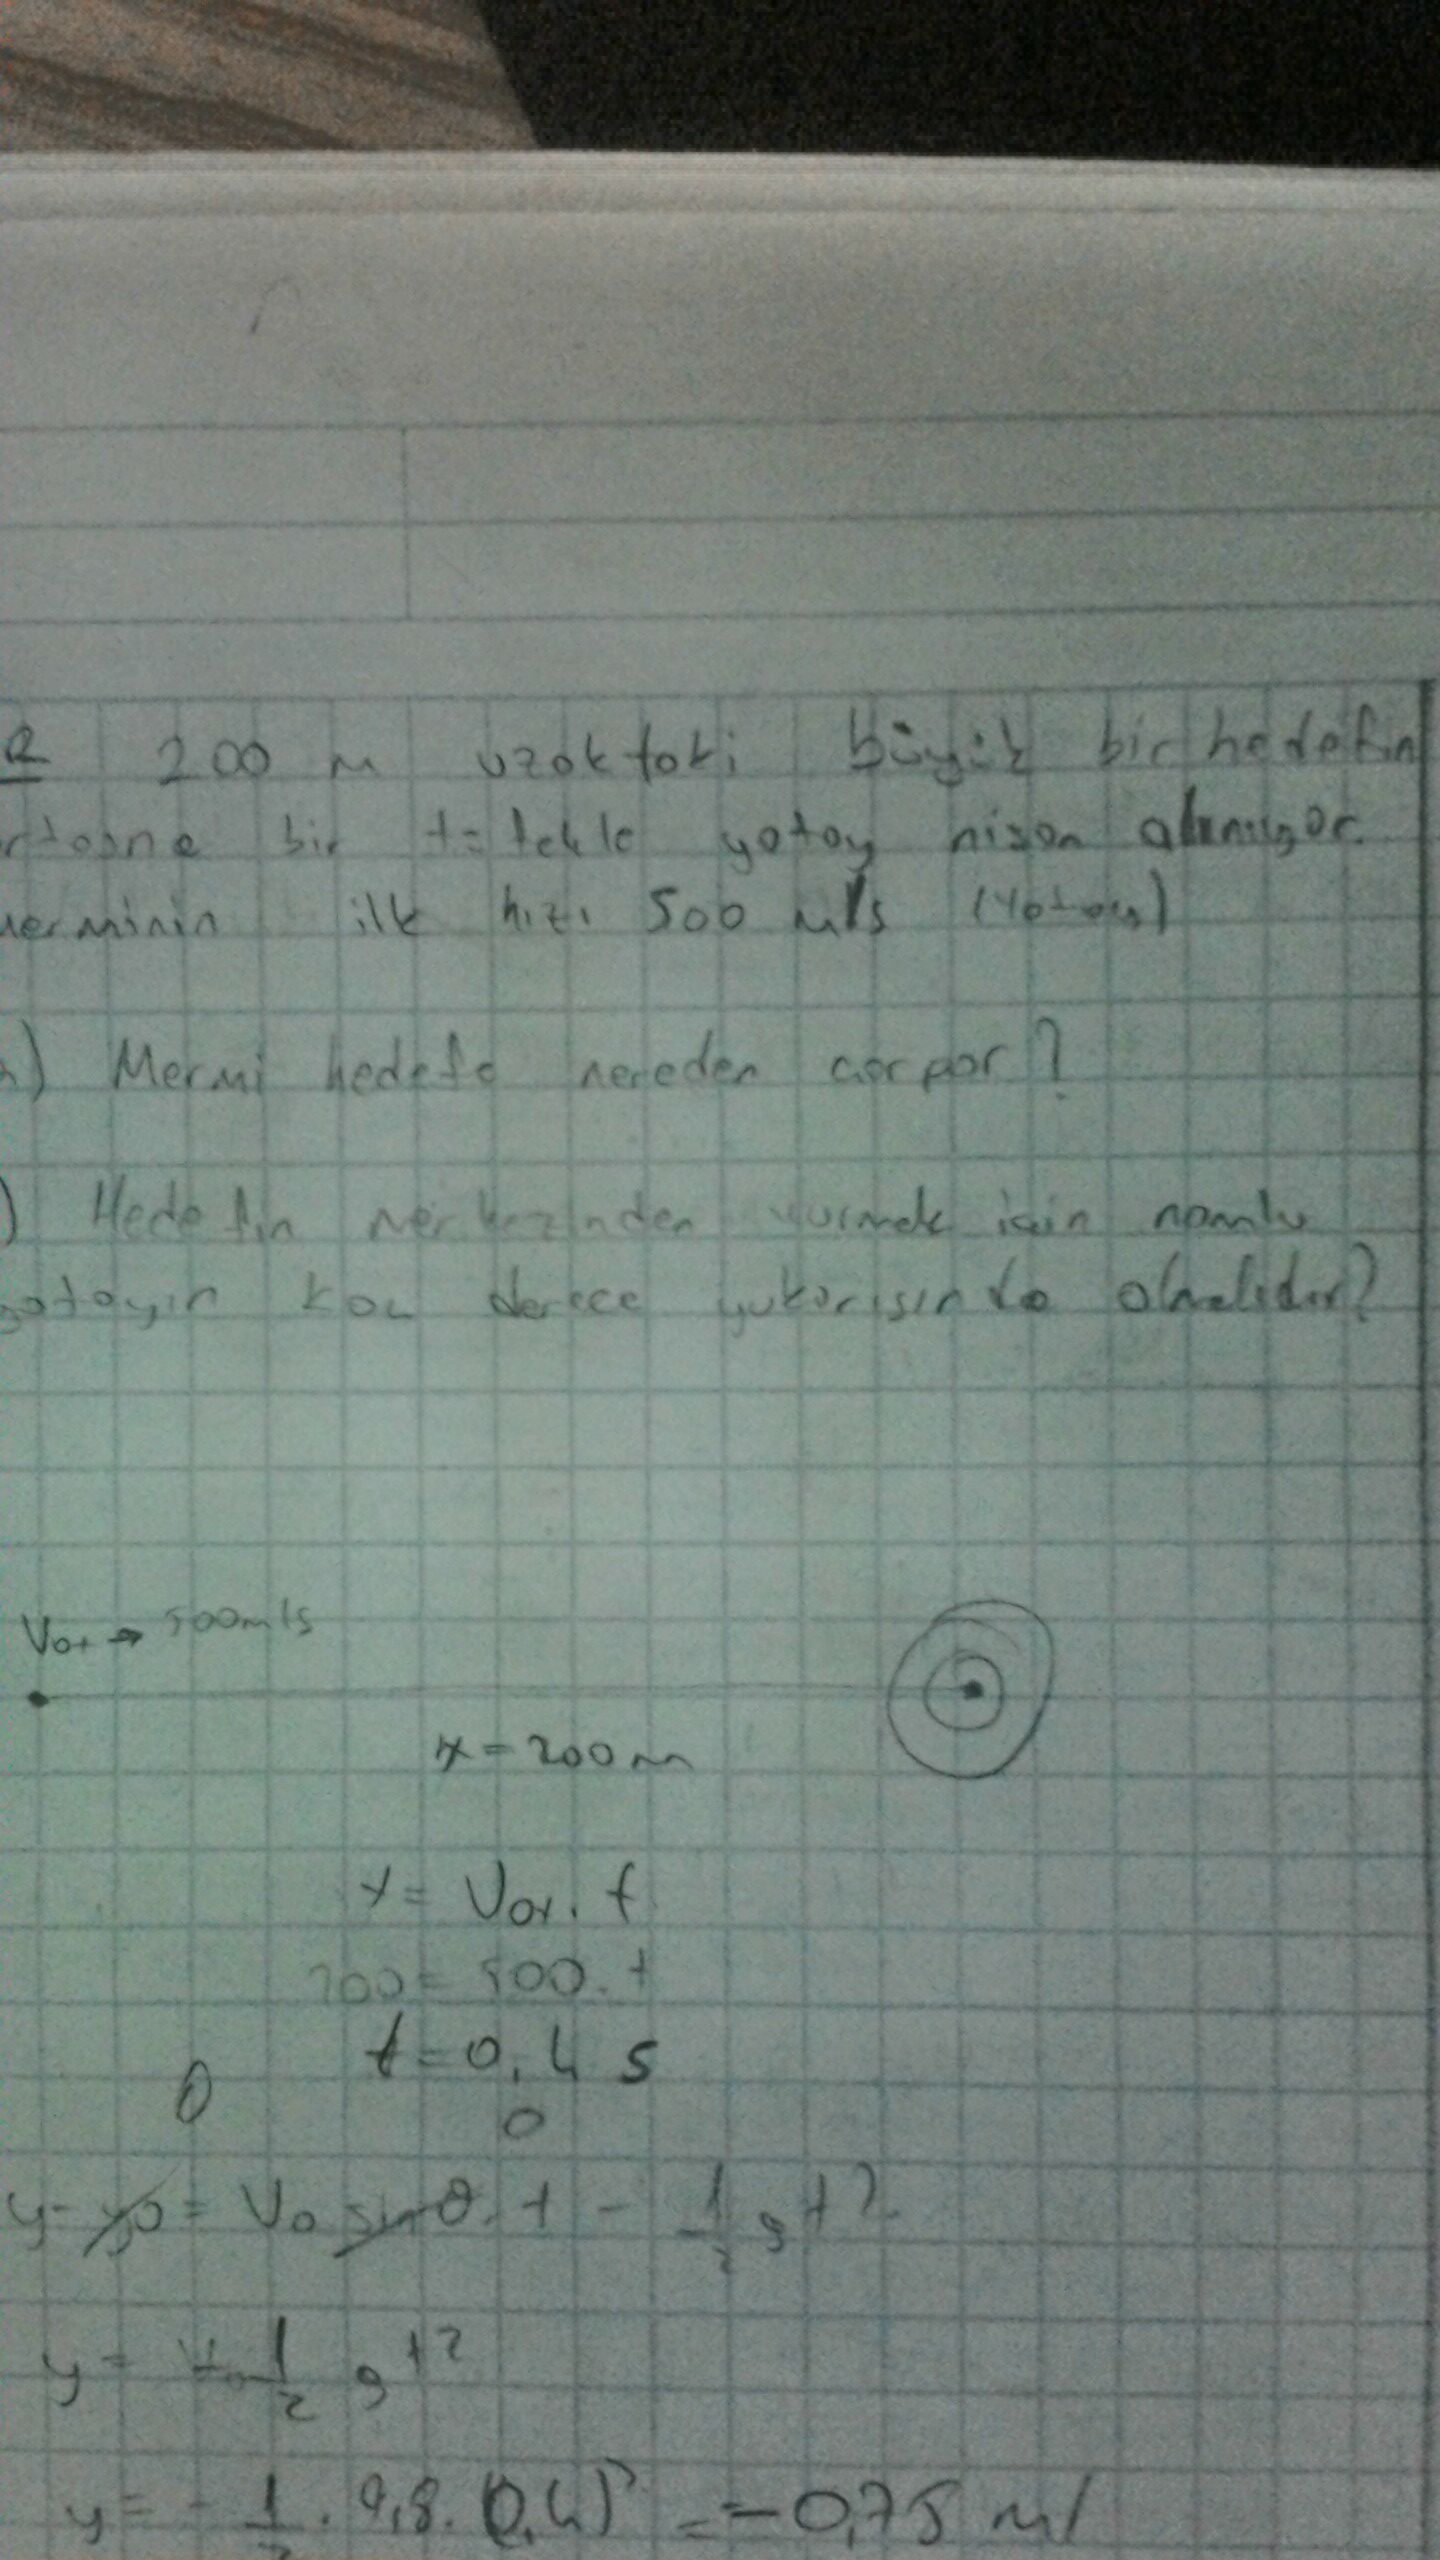 200 m uzaktaki büyük bir hedefin
ortasına bir tüfekle yatay nişan alınıyor.
Merminin ilk hızı 500 m/s (Yatay)
a) Mermi hedefe nereden çarpar?
) Hedefin merkezinden vurmak için namlu
yatayın kaç derece yukarısında olmalıdır?
Vox → 500m/s
x = 200m
x = Vox . t
200 = 500 . t
t = 0,4 s
0 0
y - y0 = V0 sinθ . t - 1/2 gt²
y = - 1/2 gt²
y = - 1/2 . 9,8 . (0,4)² = -0,78 m/